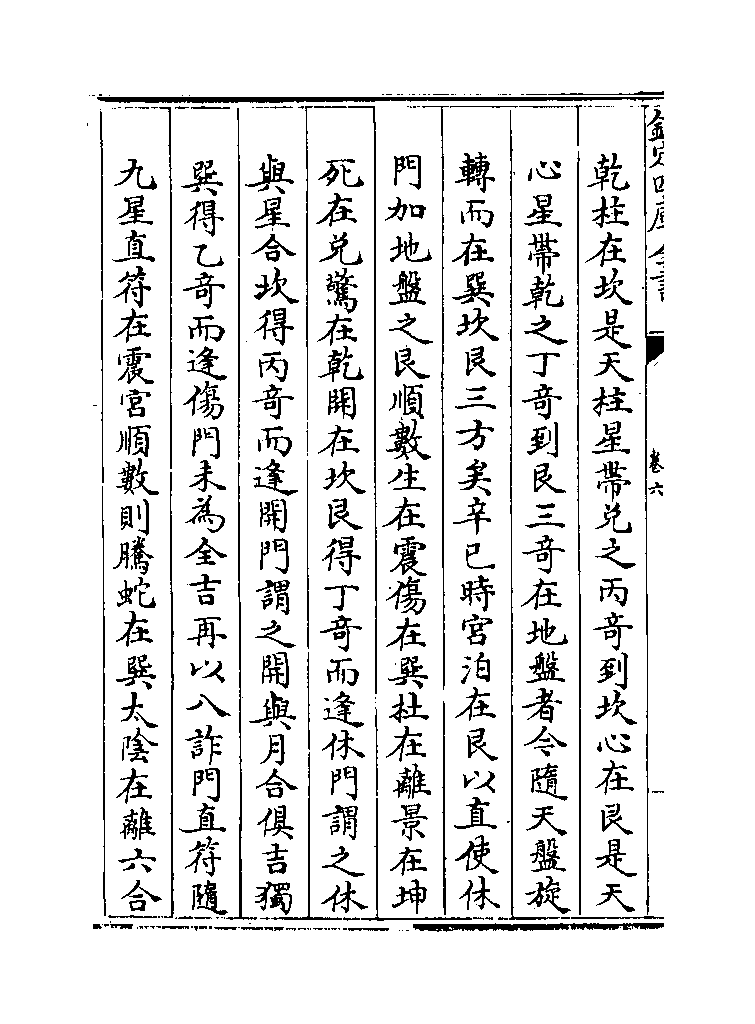 欽定四庫全書
卷六
乾柱在坎是天柱星帶兌之丙奇到坎心在艮是天
心星帶乾之丁奇到艮三奇在地盤者令隨天盤旋
轉而在巽坎艮三方矣辛巳時宮泊在艮以直使休
門加地盤之艮順數生在震傷在巽杜在離景在坤
死在兌驚在乾開在坎艮得丁奇而逢休門謂之休
與星合坎得丙奇而逢開門謂之開與月合俱吉獨
巽得乙奇而逢傷門未為全吉再以八詐門直符隨
九星直符在震宮順數則騰蛇在巽太陰在離六合